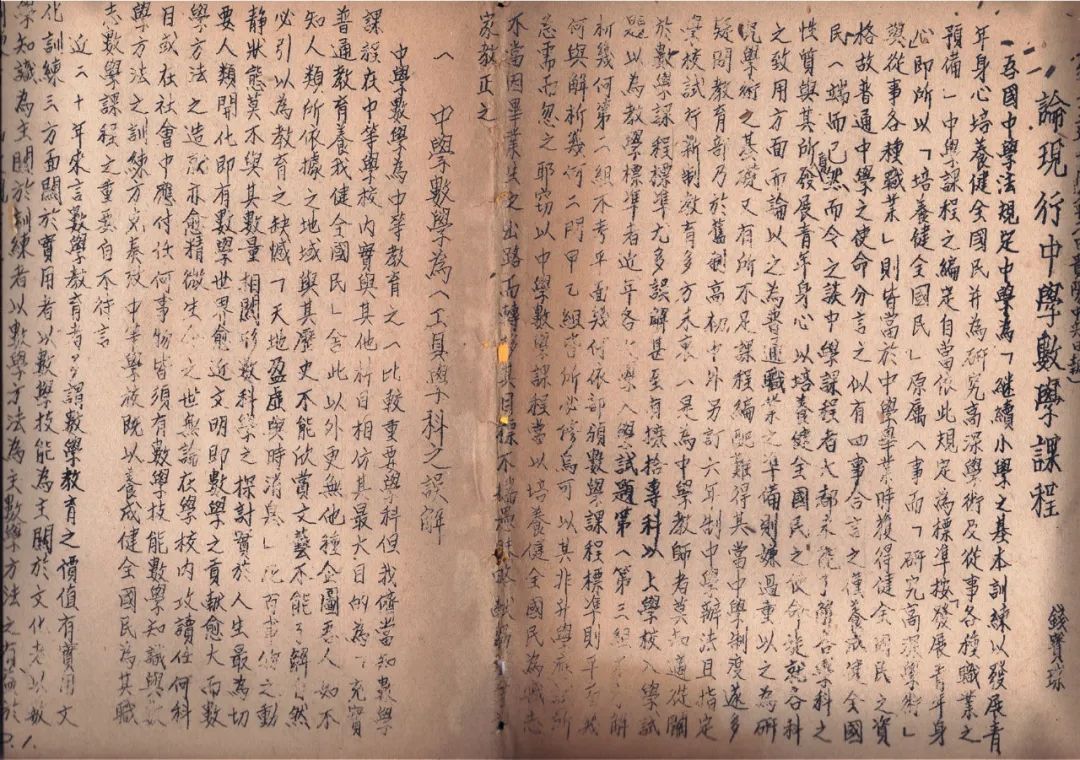 論現行中學數學課程
錢寶琮
吾國中學法規定中學為「繼續小學之基本訓練以發展青
年身心培養健全國民并為研究高深學術及從事各種職業之
預備」中學課程之編定自當依此規定為標準按「發展青年身
心」即所以「培養健全國民」原屬一事而「研究高深學術」
與從事各種職業」則皆當於中學畢業時獲得健全國民之資
格故普通中學之使命分言之似有四事合言之僅養成健全國
民一端而已然而今之談中學課程者大都未能了解各學科之
性質與其所發展青年身心以培養健全國民之使命徒就各科
之致用方面而論以之為普通職業之準備則嫌過重以之為研
究學術之基礎又有所不足課程編配難得其當中學制度遂多
疑問教育部乃於舊制高初中外另訂六年制中學辦法且指定
學校試行新制教育多方未衷一是為中學教師者莫知適從關
於數學課程標準尤多誤解甚至有據專科以上學校入學試
題以為教學標準者近年各大學入學試題第一第三組不考解
析幾何第二組不考平面幾何依部頒數學課程標準則平面幾
何與解析幾何二門甲乙組皆所必修焉可以其非升學應試所
急需而忽之耶竊以中學數學課程當以培養健全國民為職志
不當因畢業生之出路而轉其目標不揣愚昧
家教正之
一 中學數學為一工具學科之誤解
中學數學為中等教育之一比較重要學科但我儕當知數學
課程在中等學校內實與其他科目相仿其最大目的為「充實
普通教育養我健全國民」舍此以外更無他種企圖吾人如不
知人類所依據之地域與其歷史不能欣賞文藝不能了解自然
必引以為教育之缺憾「天地盈虛與時消息」宇宙之動
靜狀態莫不與其數量相關形數科學之探討實於人生最為切
要人類開化即有數學世界愈近文明即數學之貢獻愈大而數
學方法之造就亦愈精微生今之世無論在學校內攻讀任何科
目或在社會中應付任何事物皆須有數學技能數學知識與數
學方法之訓練方克奏效中等學校既以養成健全國民為其職
志數學課程之重要自不待言
近二十年來言數學教育者多謂數學教育之價值有實用文
化訓練三方面關於實用者以數學技能為主關於文化者以數
學知識為主關於訓練者以數學方法為主數學方法之有
P.1.